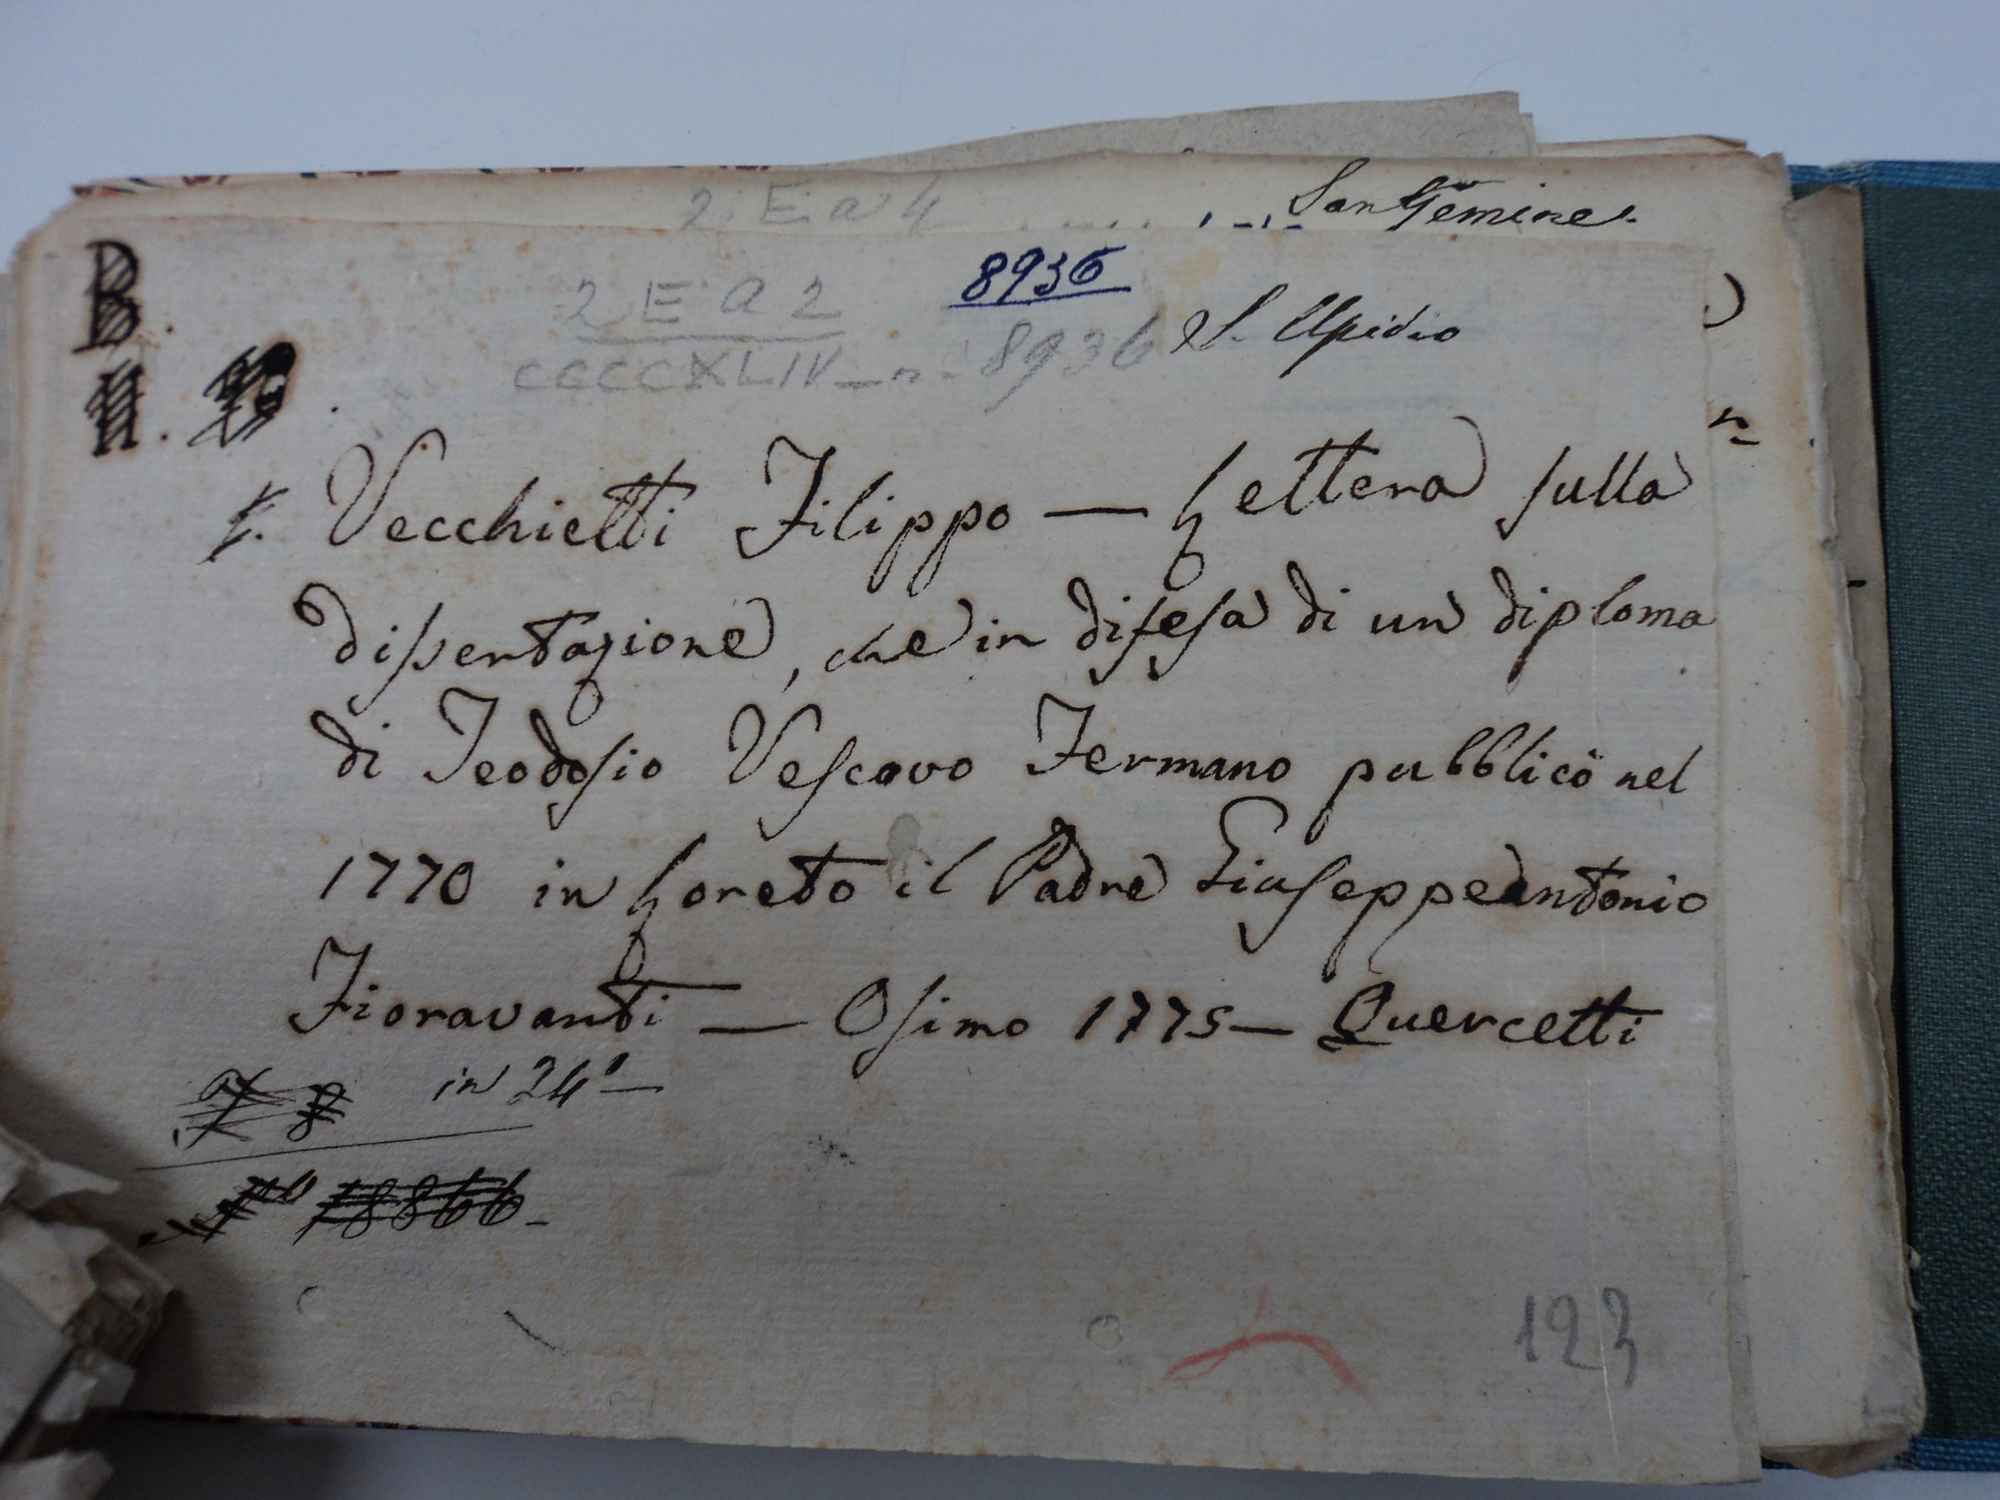 2. E. a 4
SanGemine.
B.
2 E. a 2
8936
CCCCXLIV — n. 8936
S. Elpidio
11.
Vecchietti Filippo — Lettera sulla
dissertazione, che in difesa di un diploma
di Teodosio Vescovo Fermano pubblicò nel
1770 in Loreto il Padre Giuseppeantonio
Fioravanti — Osimo 1775 — Quercetti
in 24° —
No 18866 -
123